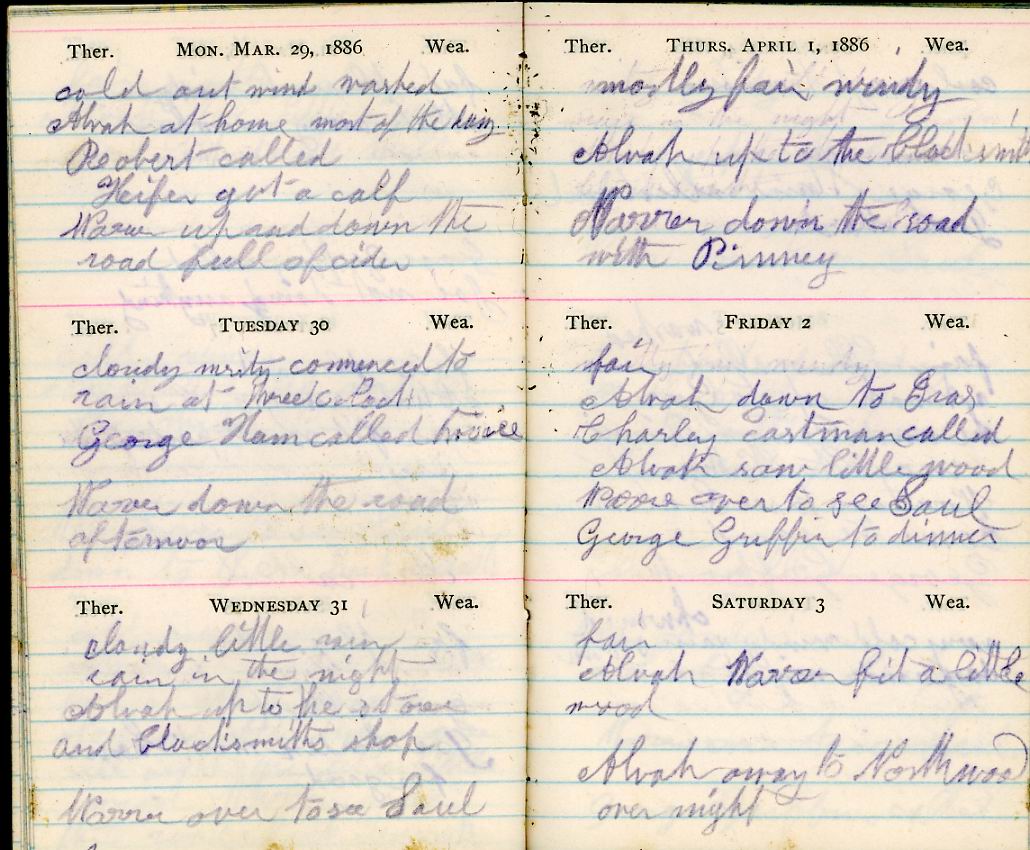 Ther. MON. MAR. 29, 1886 Wea.
cold out wind washed
Alvah at home most of the day
Robert called
Heifer got a calf
Warren up and down the
road full of cider
Ther. TUESDAY 30 Wea.
cloudy commenced to
rain at three clock
George Ham called twice
Warren down the road
afternoon
Ther. WEDNESDAY 31 Wea.
cloudy little rain
rain in the night
Alvah up to the store
and blacksmiths shop
Warren over to see Saul
Ther. THURS. APRIL 1, 1886 Wea.
mostly fair windy
Alvah up to the blacksmith
Warren down the road
with Pinney
Ther. FRIDAY 2 Wea.
fair
Alvah down to
Charley Eastman called
Alvah saw little wood
over to see Saul
George Griffin to dinner
Ther. SATURDAY 3 Wea.
fair
Alvah Warren fit a little
wood
Alvah away to Northwood
over night